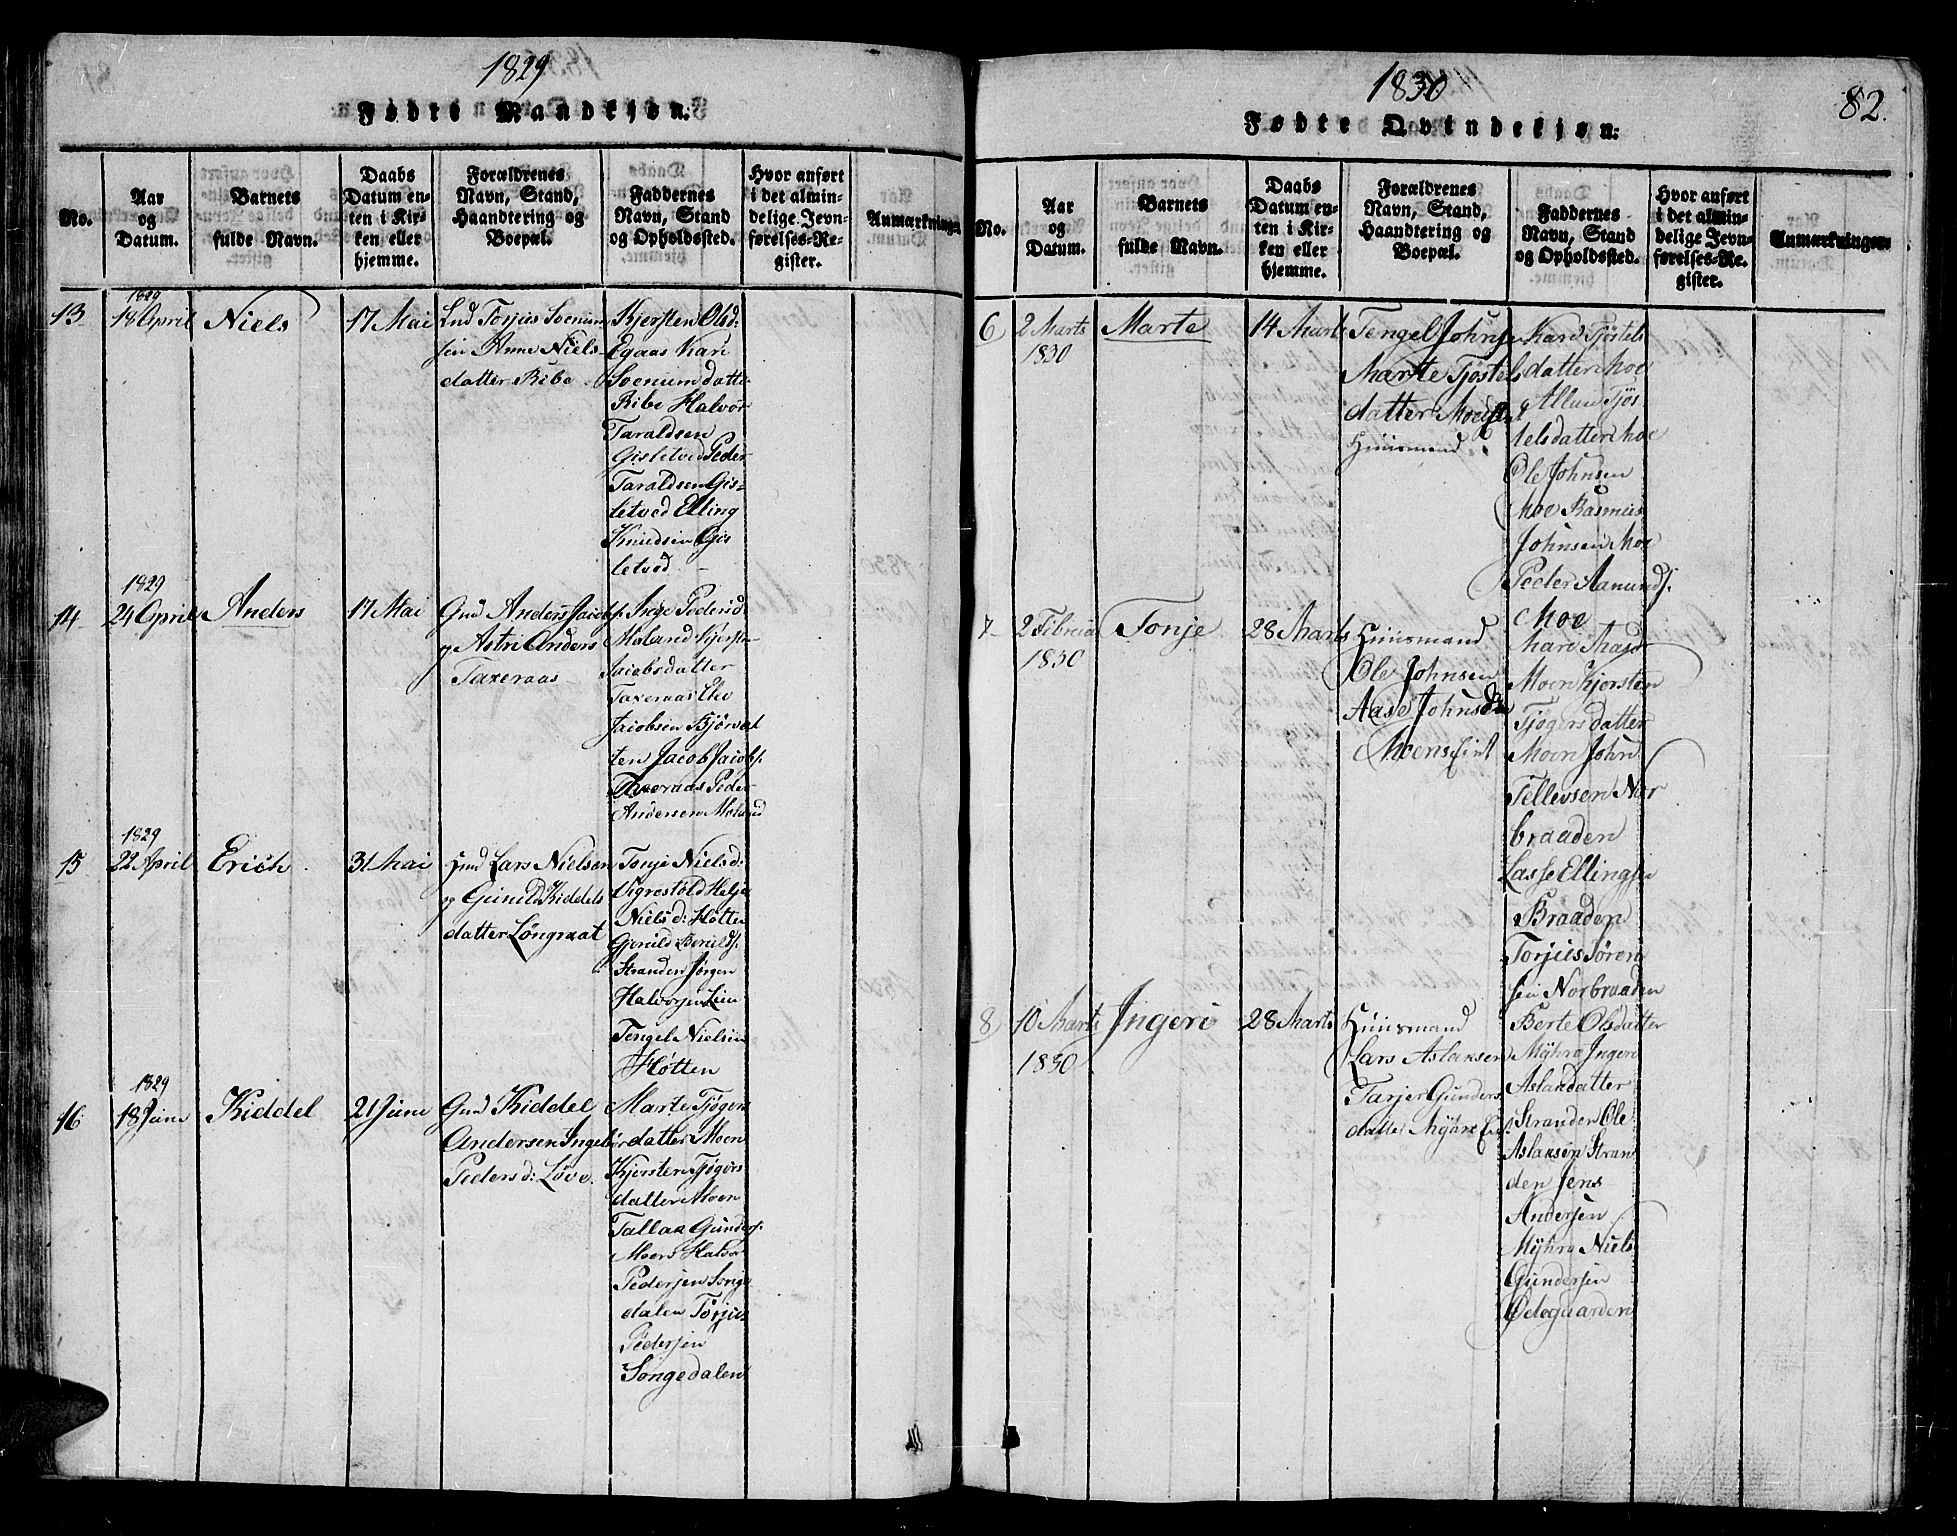 1829
Fødte Mandkjøn:
No.
Aar
og
Datum.
Barnets
fulde Navn.
Daabs
Datum en-
ten i Kir-
ken eller
hjemme.
Forældrenes
Navn, Stand,
Haandtering og
Boepæl.
Faddernes
Navn, Stand
og Opholdssted.
Hvor anført
i det almin-
delige Jevn-
førelses-Re-
gister.
Anmærkninger
13
1829
14 April
Niels
17 Mai
Torjus Soenum
sen Anne Niels
datter Ribe
Kjersten Olsd:
Egaas Kari
Soenum datter
Ribe Halvor
Taraldsen
Gisletved Peder
Taraldsen Gis-
letved Elling
Knudsen Gis
letved
14
1829
24 April
Anders
17 Mai
Gmd Anders Jacobs.
og Astri Anders
Taxeraas
Inge Pedersd
Moland Kjersten
Jacobsdatter
Taxeraas
Jacobsen
ten Jacob Jacobs.
Taxeraas Peder
Andersen Moland
15
1829
22 April
Erich
31 Mai
Gmd Lars Nielsen
og Gunild Kiddels
datter Longraat
Tonje Niels d:
Vigrestold Helje
Niels d: Hotten
Gunild Berulds.
Stranden Jørgen
Halvorsen Lien
Tengel Nielsen
Hotten
16
1829
18 Juni
Kiddel
21 Juni
Gmd Kiddel
Andersen Ingebor
Peders d: Løve.
Marte Tjøgers
datter Moen
Kjersten Tjøgers
datter Moen
Tallak Gunders.
Moen Halvor
Pedersen Songe
dalen Torjus
Pedersen
Songedalen
1830
82.
Fødte Qvindekjøn:
No.
Aar
og
Datum.
Barnets
fulde Navn.
Daabs
Datum en-
ten i Kir-
ken eller
hjemme.
Forældrenes
Navn, Stand,
Haandtering og
Boepæl.
Faddernes
Navn, Stand
og Opholdssted.
Hvor anført
i det almin-
delige Jevn-
førelses-Re-
gister.
Anmærkninger
6
2 Marts
1830
Marte
14 Marts
Tengel Johnsen
Marte Tjøstels
datter
Huusmand
Kari Tjøstels
datter Moe
Tjøs
telsdatter Moe
Ole Johnsen
Moe Rasmus
Johnsen Moe
Peder Aamunds.
Moe
7
2 Februar
1830
Tonje
28 Marts
Huusmand
Ole Johnsen
Aase Johnsd
Moens Eint
Mari
Moen Kjersten
Tjøgersdatter
Moen John
Tellevsen Nor
braaden
Lasse Ellingsen
Braaden
Torjus Søren
sen Norbraaden
8
10 Marts
1830
Ingeri
28 Marts
Huusmand
Lars Aslaksen
Tarjer Gunders
datter
Berte Olsdatter
Myhra Ingeri
Aslaudatter
Stranden Ole
Aslaksen Stran
den Jens
Andersen
Myhra Niels
Gundersen
Ødegaarden